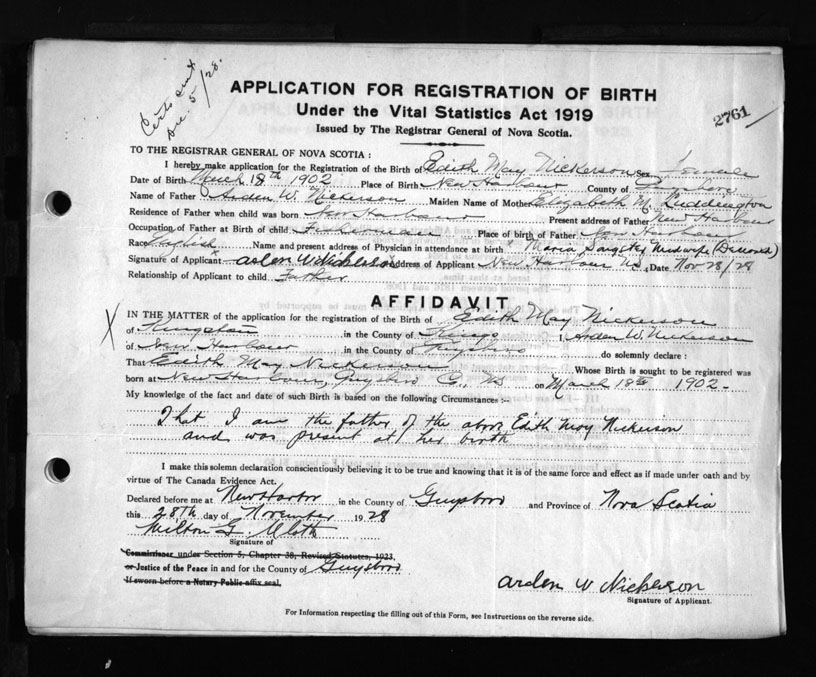 Cert sent
Dec. 5/28.
APPLICATION FOR REGISTRATION OF BIRTH
Under the Vital Statistics Act 1919
Issued by The Registrar General of Nova Scotia.
2761
TO THE REGISTRAR GENERAL OF NOVA SCOTIA :
I hereby make application for the Registration of the Birth of Edith May Nickerson Sex Female
Date of Birth March 18th 1902 Place of Birth New Harbour County of Guysboro
Name of Father Arden W. Nickerson Maiden Name of Mother Elizabeth M. Luddington
Residence of Father when child was born New Harbour Present address of Father New Harbour
Occupation of Father at Birth of child Fisherman Place of birth of Father New Harbour
Race English Name and present address of Physician in attendance at birth Maria Midwife (Deceased)
Signature of Applicant x arden W Nickerson Address of Applicant New Harbour NS, Date Nov 28/28
Relationship of Applicant to child Father
AFFIDAVIT
X
IN THE MATTER of the application for the registration of the Birth of Edith May Nickerson
of Kingston in the County of Kings I, Arden W. Nickerson
of New Harbour in the County of Guysboro do solemnly declare :
That Edith May Nickerson Whose Birth is sought to be registered was
born at New Harbour, Guysboro Co., NS on March 18th 1902.
My knowledge of the fact and date of such Birth is based on the following Circumstances :-
That I am the father of the above Edith May Nickerson
and was present at her birth
I make this solemn declaration conscientiously believing it to be true and knowing that it is of the same force and effect as if made under oath and by
virtue of The Canada Evidence Act.
Declared before me at New Harbor in the County of Guysboro and Province of Nova Scotia
this 28th day of November 1928
Milton G.
Signature of
Commissioner under Section 5, Chapter 38, Revised Statutes, 1923,
or Justice of the Peace in and for the County of Guysboro
If sworn before a Notary Public affix seal.
arden W Nickerson
Signature of Applicant.
For Information respecting the filling out of this Form, see Instructions on the reverse side.